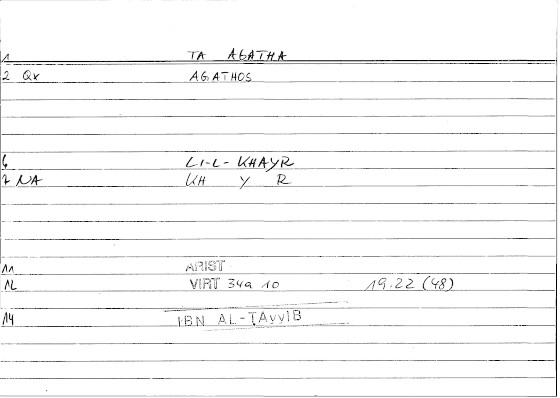 1 TA AGATHA
2 Qx AGATHOS
6 LI-L-KHAYR
7 NA KH Y R
11 ARIST
12 VIRT 34a 10 19.22 (48)
14 IBN AL-ṬAYYIB